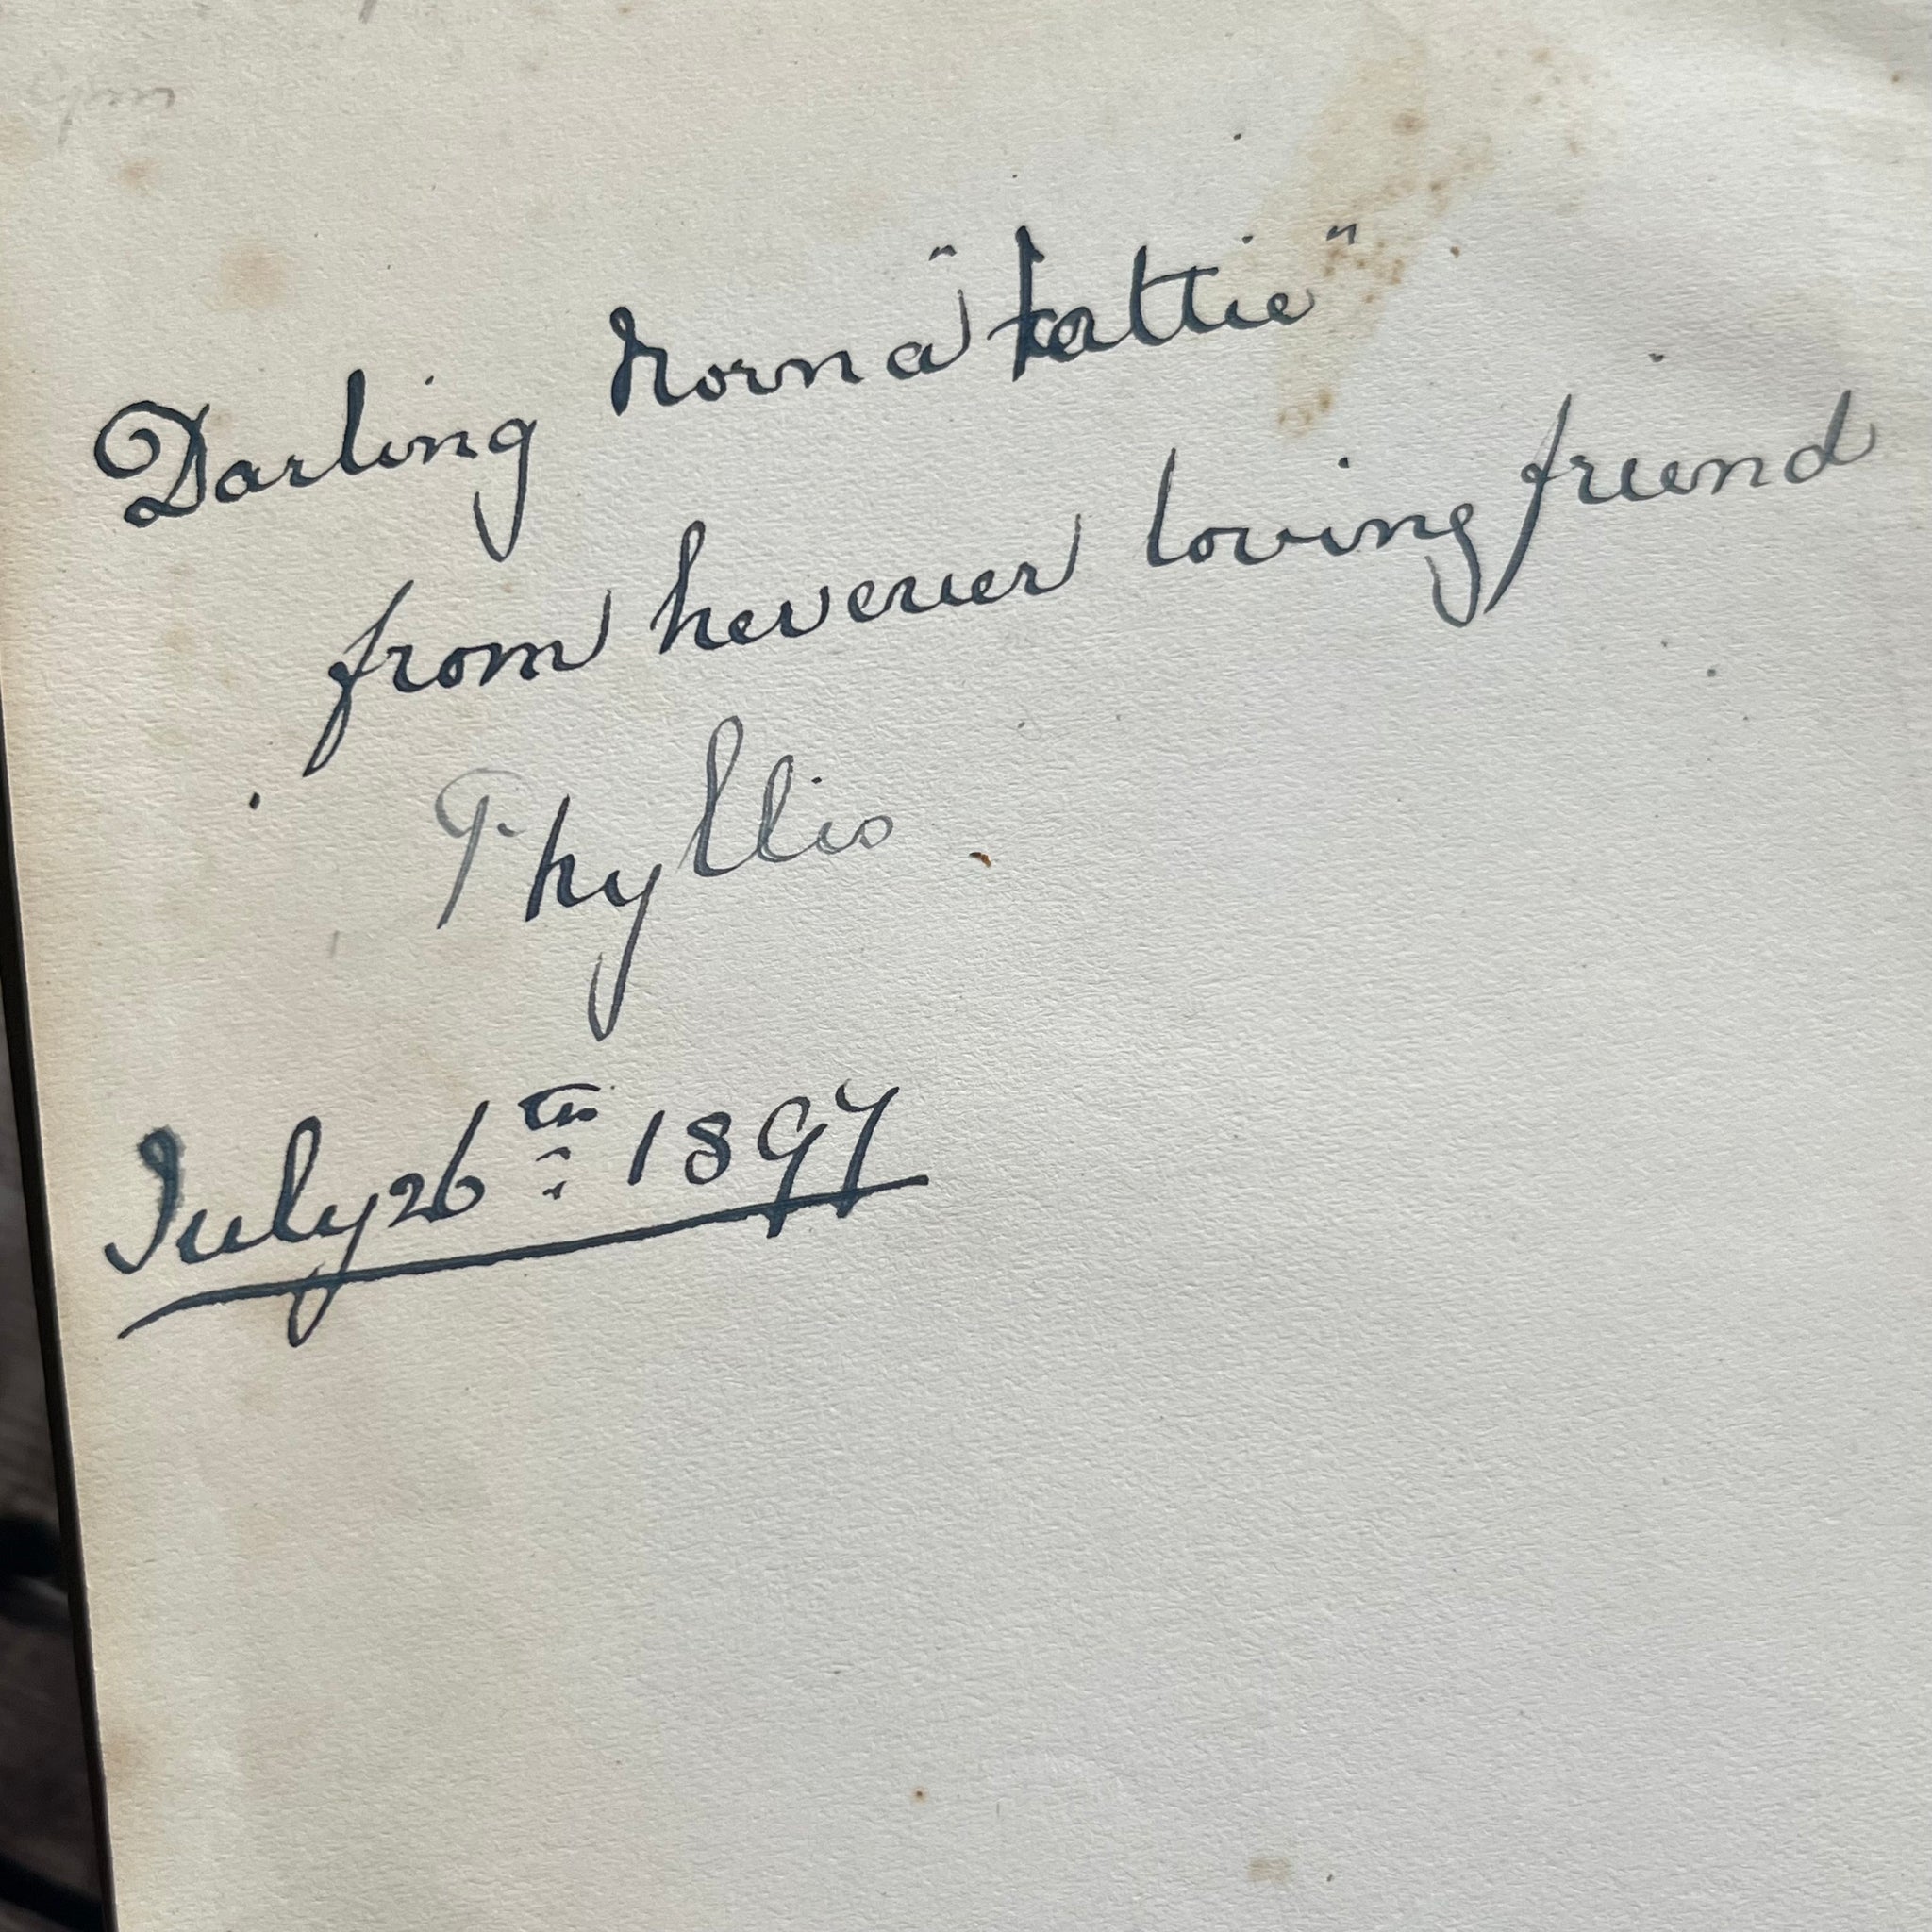 Darling Norna "Fattie"
from her ever loving friend
Phyllis.
July 26th 1897